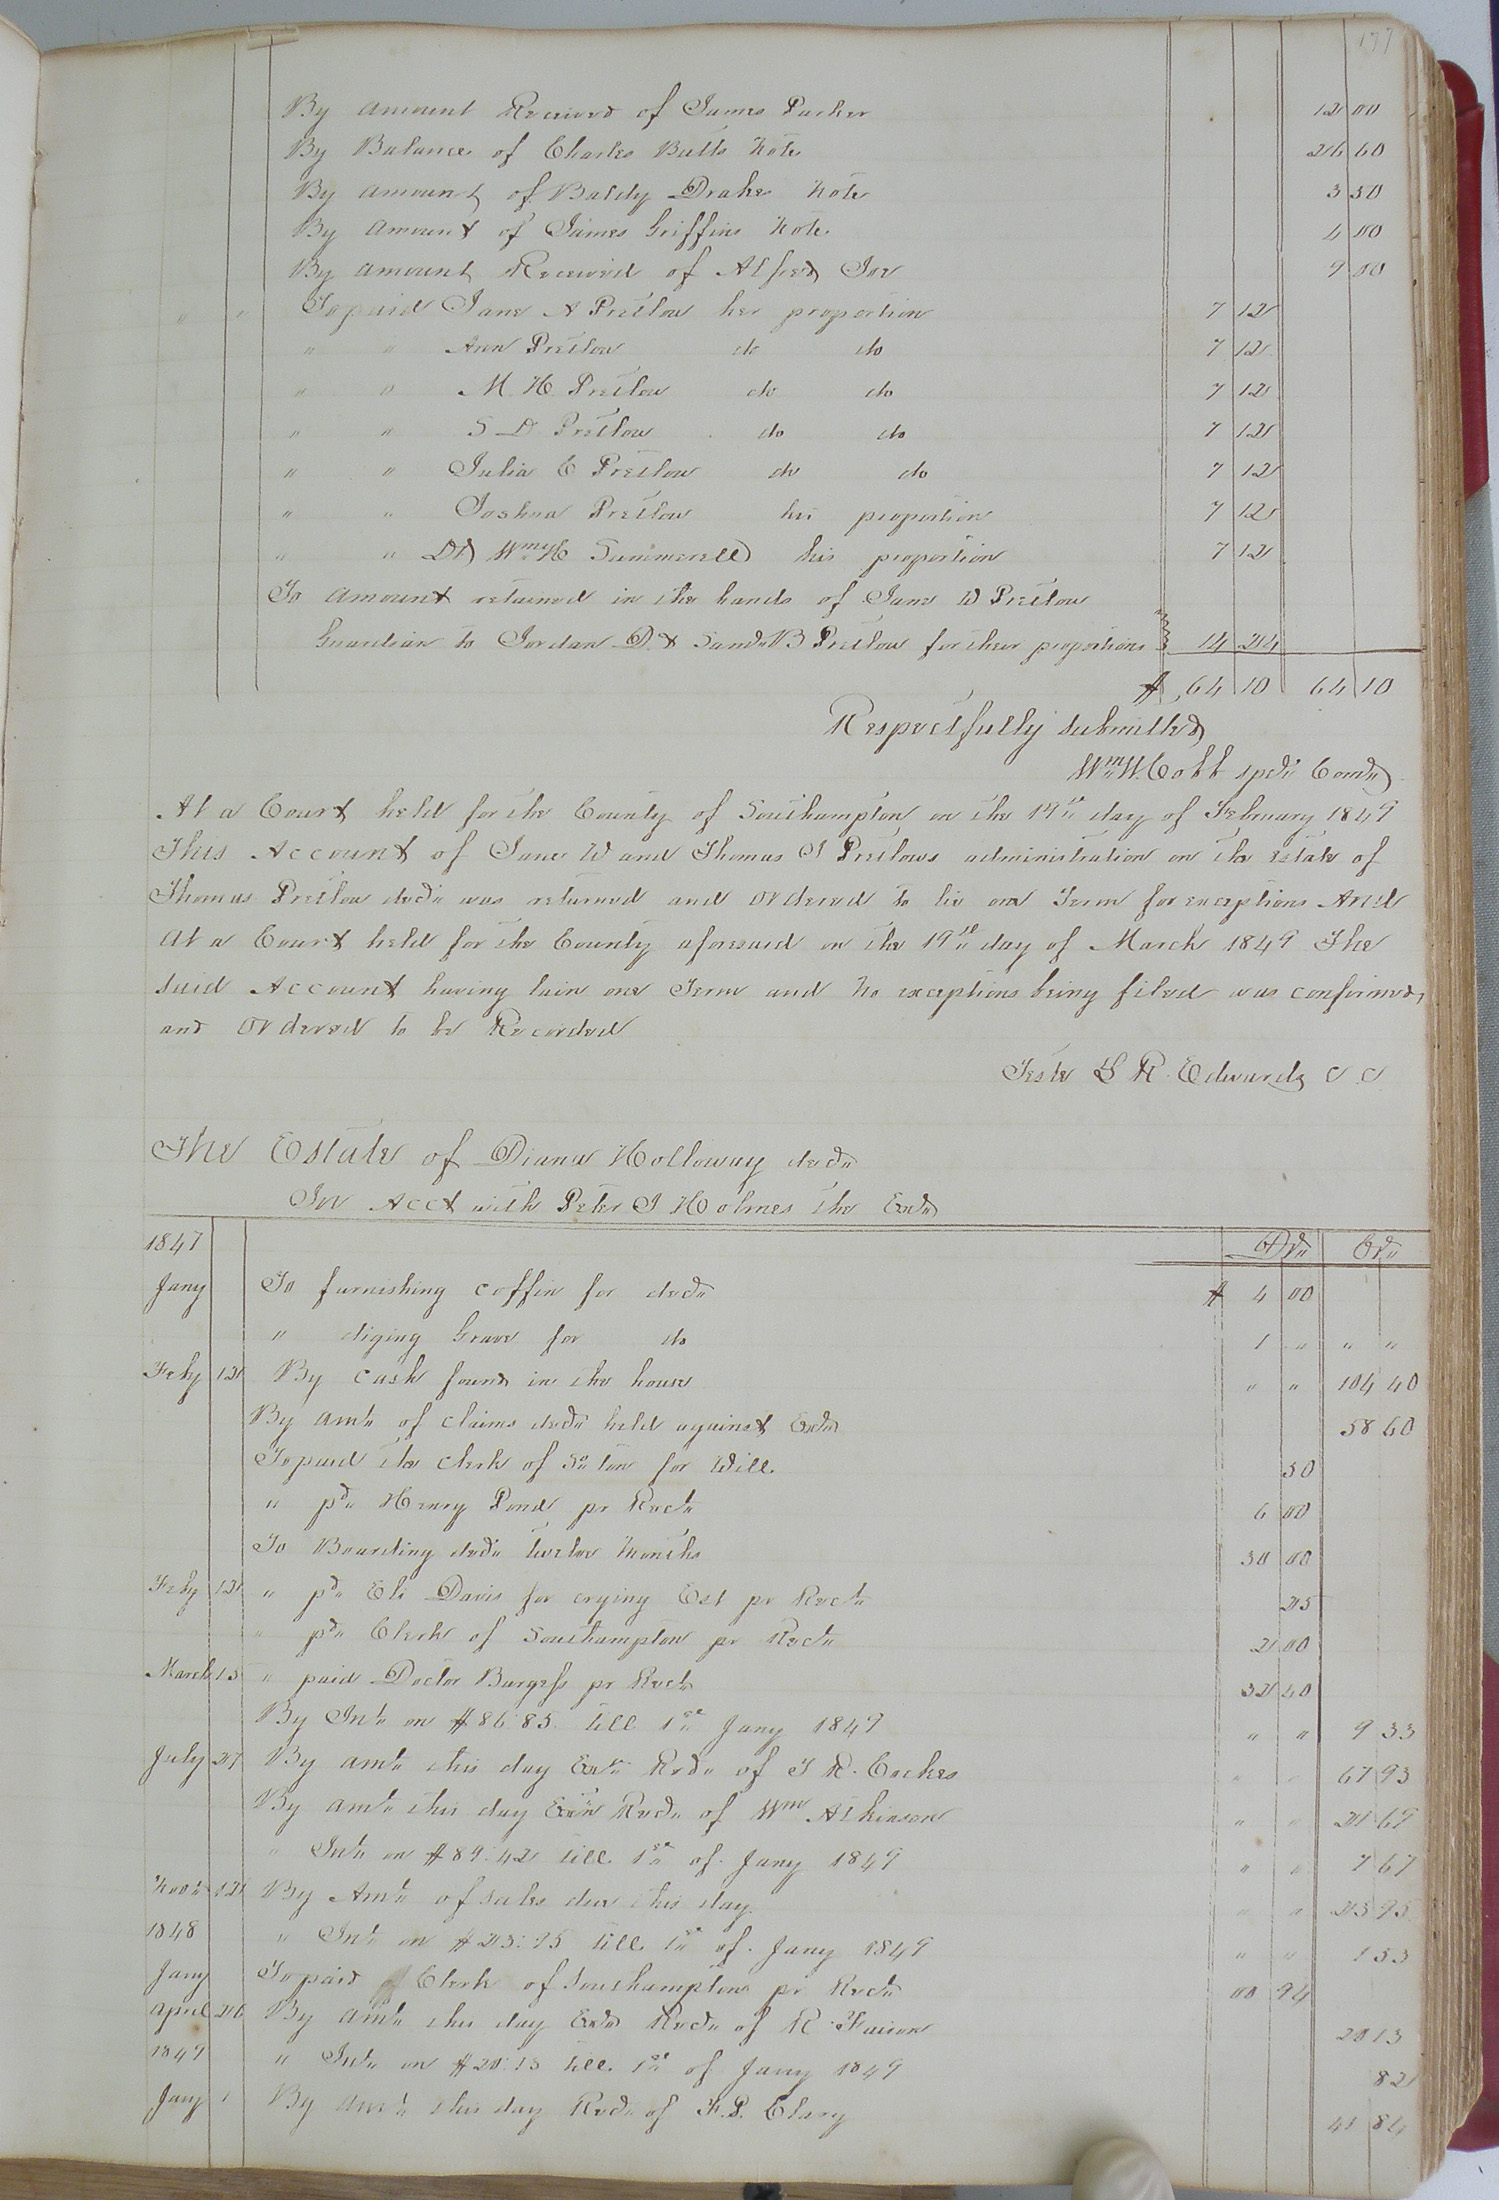 177
By amount Received of James Parker 12 00
By Balance of Charles Butts Note 26 60
By amount of Baldy Drake Note 3 50
By Amount of James Griffins Note 4 00
By amount Received of Alfred 9 00
" " To paid Jane A Pretlow her proportion 7 12
" " Ann Pretlow do do 7 12
" " M. H. Pretlow do do 7 12
" " S D Pretlow do do 7 12
" " Julia C Pretlow do do 7 12
" " Joshua Pretlow his proportion 7 12
" " Wm H Summerell his proportion 7 12
To amount retained in the hands of Jane W Pretlow
Guardian to Jordan D. & B Pretlow for their proportions 14 24
$ 64 10 64 10
Respectfully submitted
Wm W. Cobb
At a Court held for the County of Southampton on the 19th day of February 1849
This Account of Jane W and Thomas J Pretlows administration on the estate of
Thomas Pretlow decd was returned and ordered to lie one Term for exceptions And
at a Court held for the County aforesaid on the 19th day of March 1849 The
said Account having lain one Term and no exceptions being filed was confirmed,
and ordered to be Recorded
Teste L R Edwards C C
The Estate of Diana Holloway decd
In Acct with Peter J Holmes the Exr
1847 Dr Cr
Jany To furnishing coffin for decd $ 4 00
" diging Grave for do 1 " " "
Feby 12 By cash found in the house " " 104 40
By amt of claims decd held against Exr 58 60
To paid the clerk of So ton for Will 50
" pd Henry Pond pr Rect 6 00
To Boarding decd twelve months 30 00
Feby 12 " pd Eli Davis for crying Est pr Rect 25
" pd Clerk of Southampton pr Rect 2 00
March 15 " paid Doctor Burgess pr Rect 32 40
By Int on $86:85 till 1st Jany 1849 " " 9 33
July 27 By amt this day Exr Recd of J R. Cockes " " 67 93
By amt this day Exr Recd of Wm Atkinson " " 21 69
" Int on $89:42 till 1st of Jany 1849 " " 7 67
Novr 12 By Amt of sales due this day " " 23 95
1848 " Int on $23:95 till 1st of Jany 1849 " " 1 53
Jany To paid Clerk of Southampton pr Rect 00 94
April 26 By amt this day Exr Recd of R Faison 20 13
1849 " Int on $20:13 till 1st of Jany 1849 82
Jany 1 By amt this day Recd of F. P. Clary 41 84